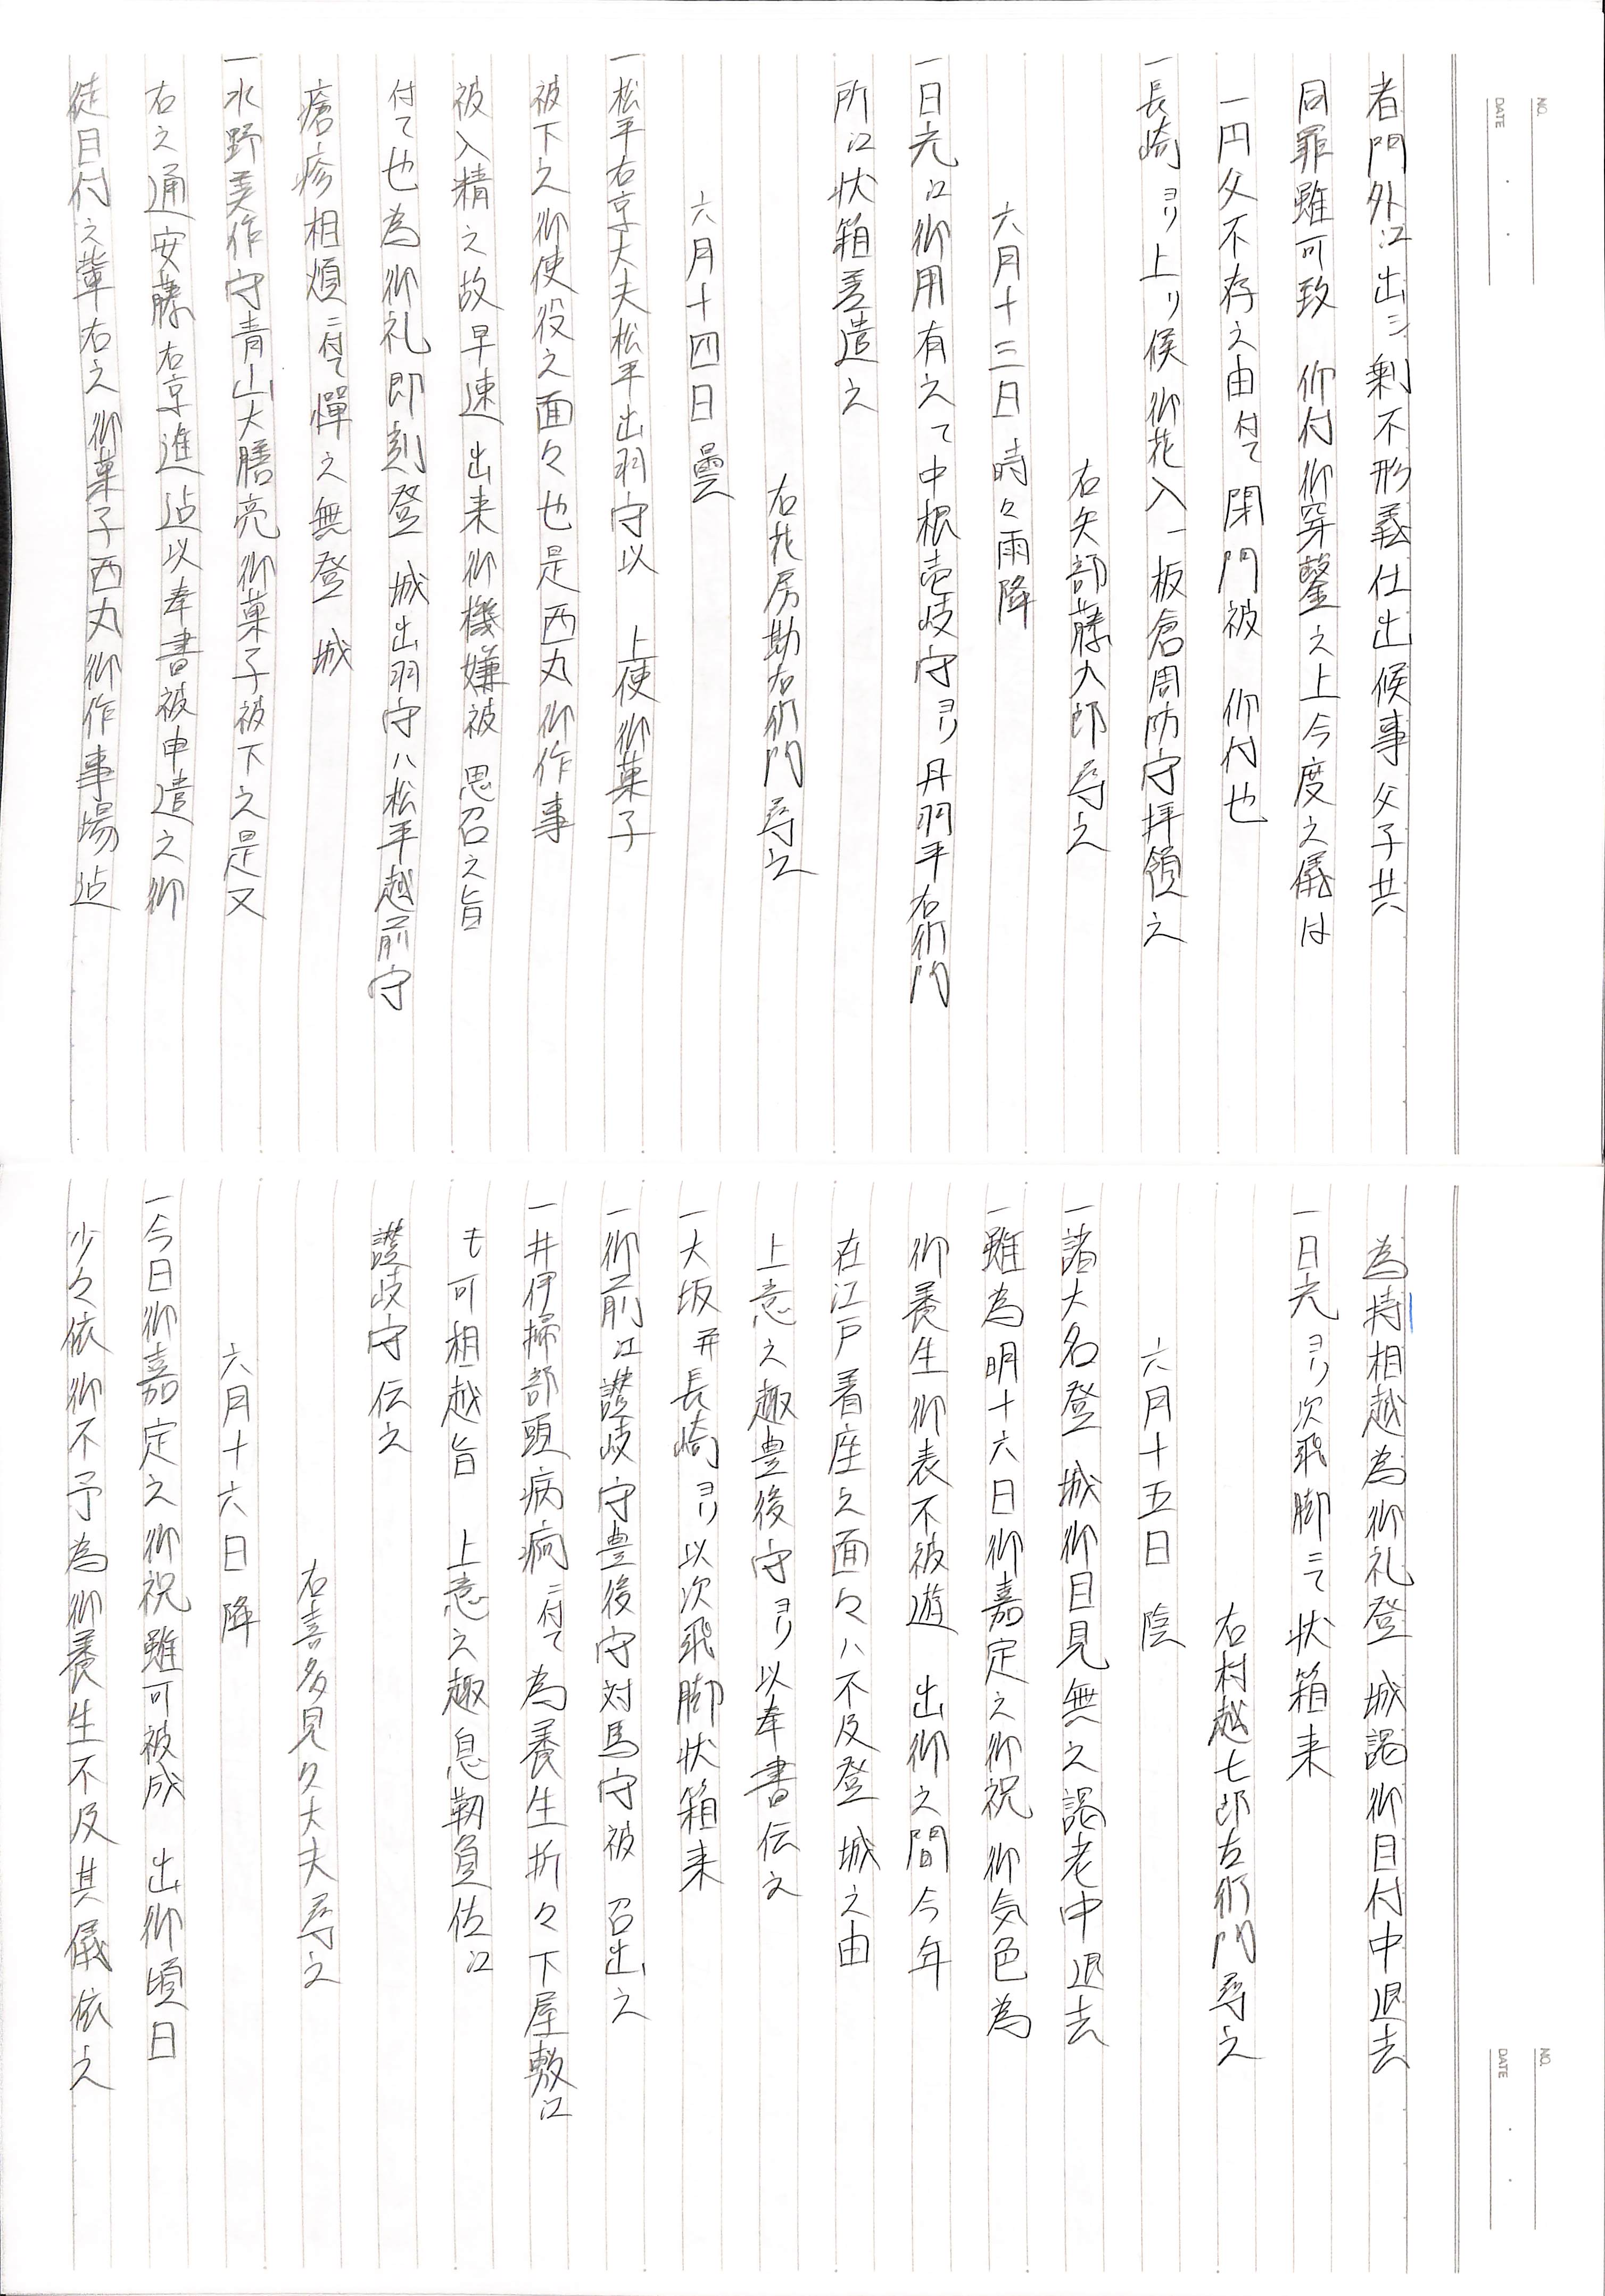 NO.
DATE
者門外江出シ剰不形義仕出候事父子共
同罪雖可致　仰付御穿鑿之上今度之儀は
一円父不存之由付て閉門被　仰付也
一長崎ヨリ上リ候御花入一板倉周防守拝領之
右矢部藤九郎尋之
六月十三日 時々雨降
一日光江御用有之て中根壱岐守ヨリ丹羽平右衛門
所江状箱差遣之
右花房勘右衛門尋之
六月十四日 曇
一松平右京大夫松平出羽守以　上使御菓子
被下之御使役之面々也是西丸御作事
被入精之故早速出来御機嫌被　思召之旨
付て也為御礼即刻登　城出羽守ハ松平越前守
瘡疹相煩ニ付て憚之無登　城
一水野美作守青山大膳亮御菓子被下之是又
右之通安藤右京進迠以奉書被申遣之御
徒目付之輩右之御菓子西丸御作事場迠
NO.
DATE
為持相越為御礼登　城謁御目付中退去
一日光ヨリ次飛脚ニて状箱来
右村越七郎左衛門尋之
六月十五日 陰
一諸大名登　城御目見無之謁老中退去
一雖為明十六日御嘉定之御祝御気色為
御養生御表不被遊　出御之間今年
在江戸着座之面々ハ不及登　城之由
上意之趣豊後守ヨリ以奉書伝之
一大坂并長崎ヨリ以次飛脚状箱来
一御前江讃岐守豊後守対馬守被　召出之
一井伊掃部頭病痾ニ付て為養生折々下屋敷江
も可相越旨　上意之趣息靭負佐江
讃岐守伝之
右喜多見久大夫尋之
六月十六日 降
一今日御嘉定之御祝雖可被成　出御頃日
少々依御不予為御養生不及其儀依之